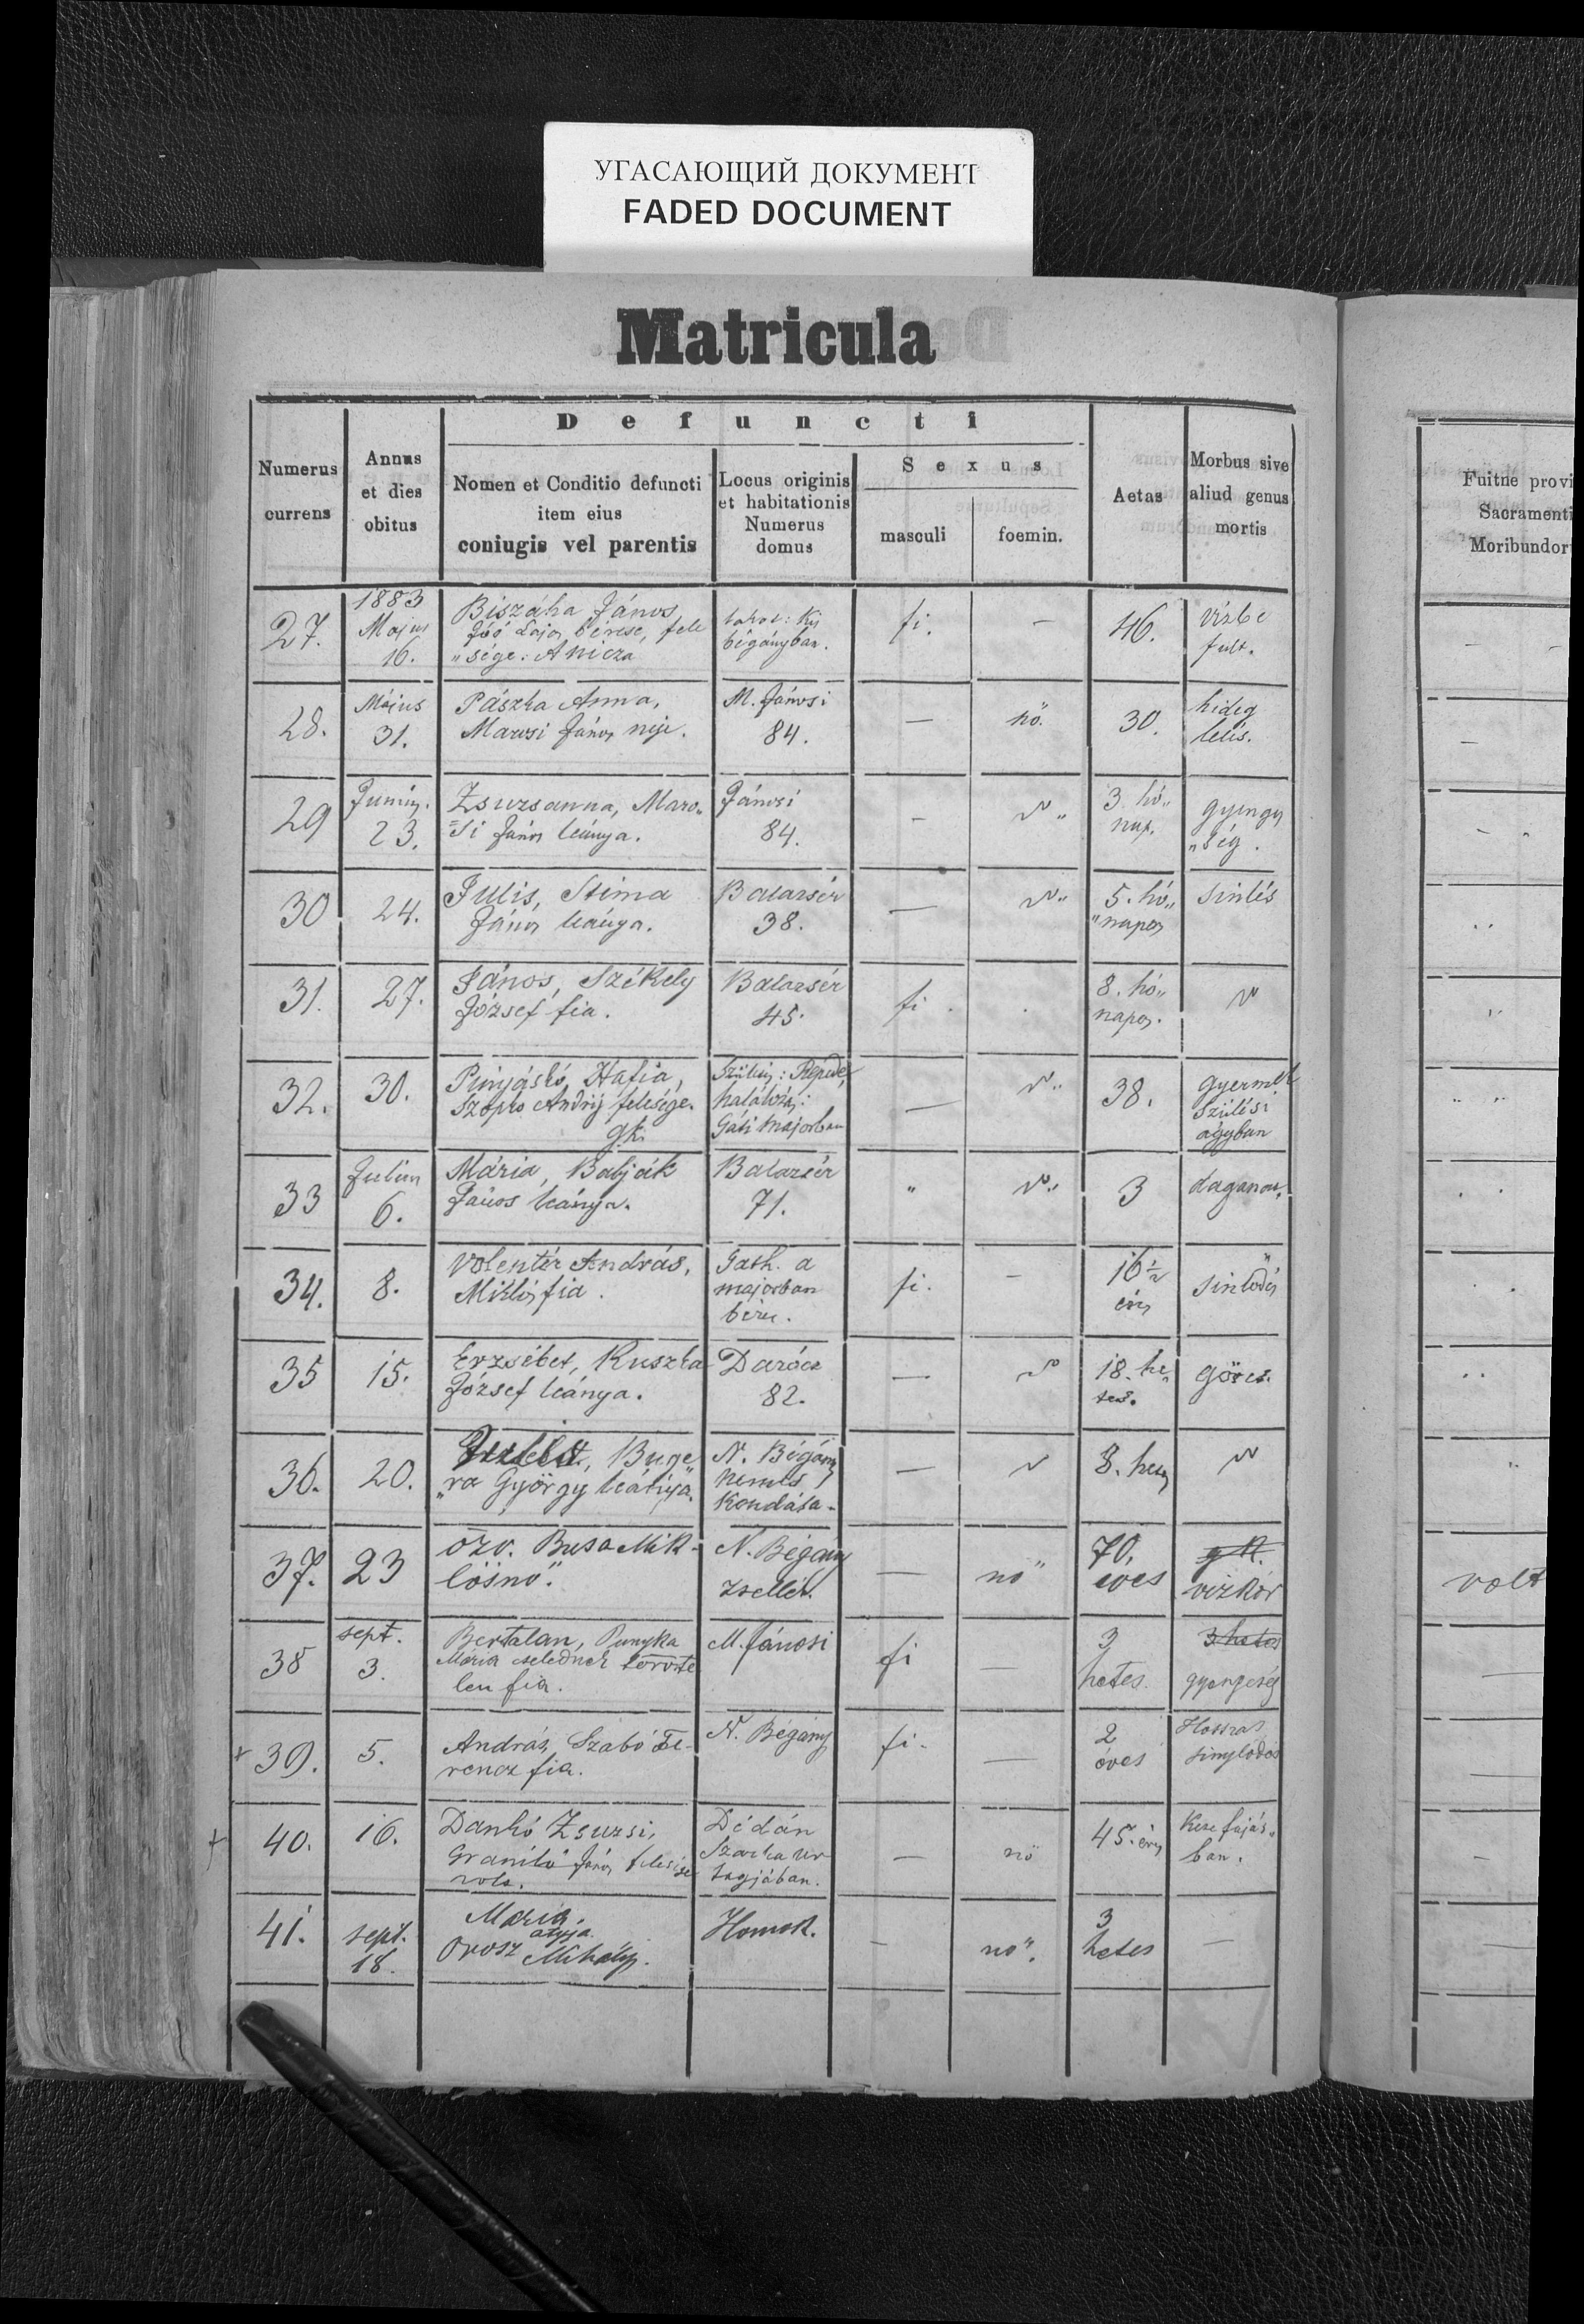 УГАСАЮЩИЙ ДОКУМЕНТ
FADED DOCUMENT
Matricula
Defuncti
Numerus currens
Annus et dies obitus
Nomen et Conditio defuncti
item eius
coniugis vel parentis
Locus originis
et habitationis
Numerus
domus
Sexus
masculi
foemin.
Aetas
Morbus sive
aliud genus
mortis
Fuitne provi
Sacramenti
Moribundor
27.
1883
Majus
16.
Biszaha János
Joó Lajos bérese, fele
"sége: Anicza
lakot: Kis
bégányban.
fi.
—
46.
Vizbe
fult.
28.
Május
31.
Pászka Anna,
Marosi János neje.
M. Jánosi
84.
—
nő.
30.
hideg
lelés.
29
Junius.
23.
Zsuzsanna, Maro„
=si János leánya.
Jánosi
84.
-
3 hó„
nap.
gyenge
„ség.
30
24.
Julis, Stima
János leánya.
Balazsér
38.
—
5. hó„
"napos
Sinlés
31.
27.
János, Székely
József fia.
Balazsér
45.
fi.
8. hó„
napos.
32.
30.
Punyáskó, Hafia,
Szopko Andrij felesége.
gk.
Repede,
Gáti majorban
—
38.
gyermek
Szülési
ágyban
33
Julius
6.
Mária, Babják
János leánya.
Balazsér
71.
"
3
daganat.
34.
8.
Volentér András,
Miklós fia.
Gath. a
majorban
béres.
fi.
—
16 ½
éves
Sinlődés
35
15.
Erzsébet, Ruszka
József leánya.
Darócz
82.
—
18. he„
tes.
Görcs.
36.
20.
Buge„
„ra György leánya.
N. Bégány
nemes
Kondása.
—
8. hetes
37.
23
özv. Busa Mik-
lósnő.
N. Bégány
zsellér.
—
nő
70.
eves
g k.
vizkór
volt
38
sept.
3.
Bertalan, Punyka
Mária cselédnek törvte
len fia.
M. Jánosi
fi
—
3
hetes.
3 hetes
gyengeség
+ 39.
5.
András, Szabó Fe-
rencz fia.
N. Bégány
fi.
—
2
éves
Hosszas
sinylődés
+ 40.
16.
Dankó Zsuzsi,
Granitó János felesége
volt.
Dédán
Szarka ur
tagjában.
—
nő
45. éves
ban.
41.
sept.
18.
Mária.
atyja
Orosz Mihály.
Homok.
—
nő.
3
hetes
—